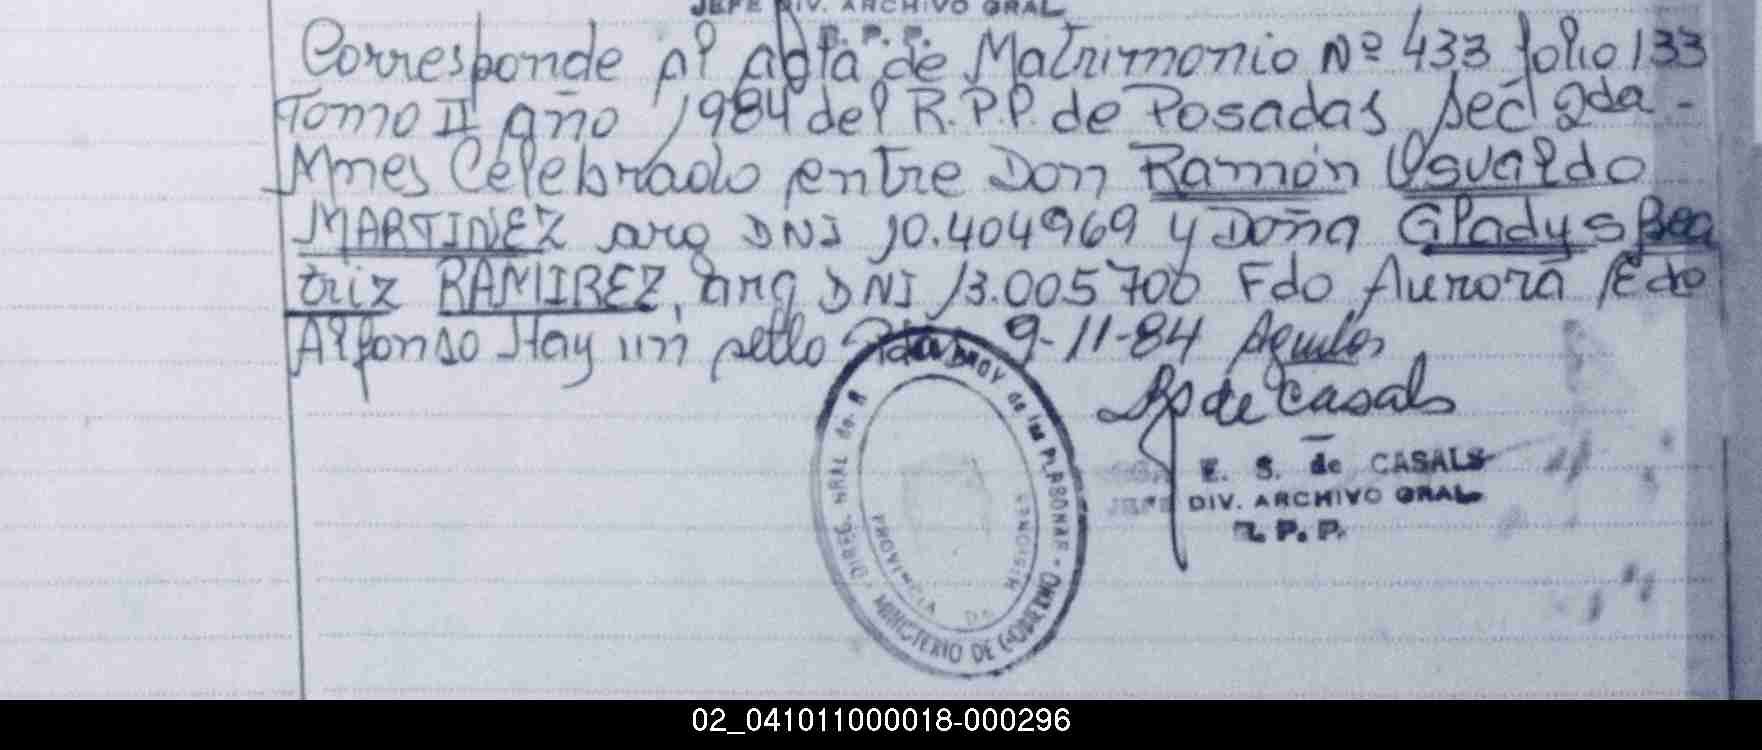 JEFE DIV. ARCHIVO GRAL
R. P. P.
Corresponde al acta de Matrimonio Nº 433 folio 133
Tomo II año 1984 del R.P.P. de Posadas Sec 2da -
Mnes Celebrado entre Don Ramón Osvaldo
MARTINEZ arg DNI 10.404969 y Doña Gladys Bea
triz RAMIREZ, arg DNI 13.005700 Fdo Aurora E de
Alfonso Hay un sello Pdas 9-11-84
de Casals
E. S. de CASALS
JEFE DIV. ARCHIVO GRAL.
R. P. P.
DIREC. GRAL de R PROV de las PERSONAS - MINISTERIO DE GOBIERNO -
PROVINCIA DE MISIONES
02_041011000018-000296